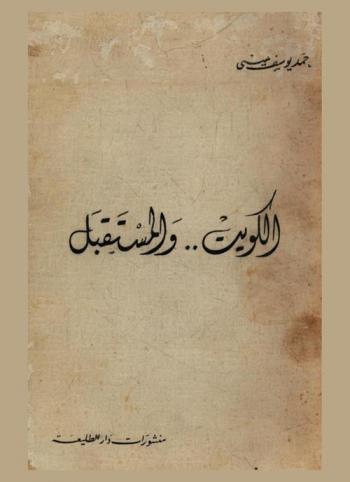 حمد يوسف عيسى
الكويت .. وَالمسْتَقبَل
منشورات دار الطليعة